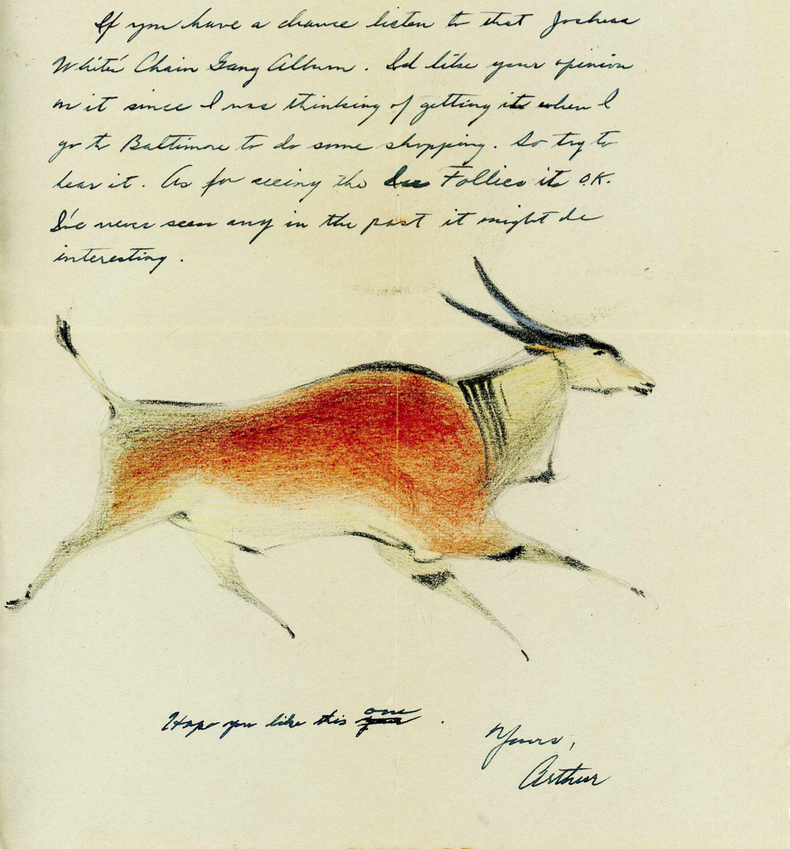 If you have a chance listen to that Joshua
White' Chain Gang Album. I'd like your opinion
on it since I was thinking of getting it when I
go to Baltimore to do some shopping. So try to
hear it. As for seeing the Ice Follies its O.K.
I've never seen any in the past it might be
interesting.
Hope you like this one.
Yours,
Arthur